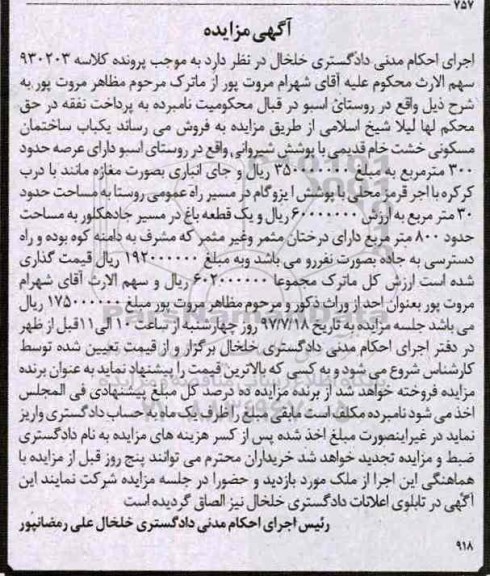 ۷۵۷
آگهی مزایده
اجرای احکام مدنی دادگستری خلخال در نظر دارد به موجب پرونده کلاسه ۹۳۰۲۰۳
سهم الارث محکوم علیه آقای شهرام مروت پور از ماترک مرحوم مظاهر مروت پور به
شرح ذیل واقع در روستای اسبو در قبال محکومیت نامبرده به پرداخت نفقه در حق
محکم لها لیلا شیخ اسلامی از طریق مزایده به فروش می رساند یکباب ساختمان
مسکونی خشت خام قدیمی با پوشش شیروانی واقع در روستای اسبو دارای عرصه حدود
۳۰۰ مترمربع به مبلغ ۳۵۰۰۰۰۰۰۰ ریال و جای انباری بصورت مغازه مانند با درب
کرکره با اجر قرمز محلی با پوشش ایزوگام در مسیر راه عمومی روستا به مساحت حدود
۳۰ متر مربع به ارزش ۶۰۰۰۰۰۰۰ ریال و یک قطعه باغ در مسیر جاده کلور به مساحت
حدود ۸۰۰ متر مربع دارای درختان مثمر وغیر مثمر که مشرف به دامنه کوه بوده و راه
دسترسی به جاده بصورت نفررو می باشد وبه مبلغ ۱۹۲۰۰۰۰۰۰ ریال قیمت گذاری
شده است ارزش کل ماترک مجموعا ۶۰۲۰۰۰۰۰۰ ریال و سهم الارث آقای شهرام
مروت پور بعنوان احد از وراث ذکور و مرحوم مظاهر مروت پور مبلغ ۱۷۵۰۰۰۰۰۰ ریال
می باشد جلسه مزایده به تاریخ ۹۷/۷/۱۸ روز چهارشنبه از ساعت ۱۰ الی ۱۱ قبل از ظهر
در دفتر اجرای احکام مدنی دادگستری خلخال برگزار و از قیمت تعیین شده توسط
کارشناس شروع می شود و به کسی که بالاترین قیمت را پیشنهاد نماید به عنوان برنده
مزایده فروخته خواهد شد از برنده مزایده ده درصد کل مبلغ پیشنهادی فی المجلس
اخذ می شود نامبرده مکلف است مابقی مبلغ را ظرف یک ماه به حساب دادگستری واریز
نماید در غیراینصورت مبلغ اخذ شده پس از کسر هزینه های مزایده به نام دادگستری
ضبط و مزایده تجدید خواهد شد خریداران محترم می توانند پنج روز قبل از مزایده با
هماهنگی این اجرا از ملک مورد بازدید و حضورا در جلسه مزایده شرکت نمایند این
آگهی در تابلوی اعلانات دادگستری خلخال نیز الصاق گردیده است
رئیس اجرای احکام مدنی دادگستری خلخال علی رمضانپور
۹۱۸